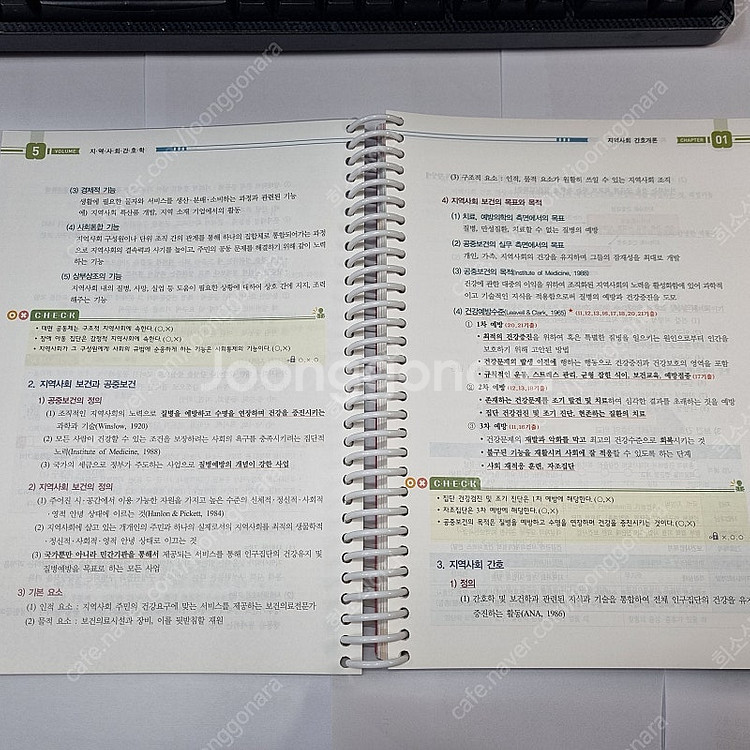 5 VOLUME 지·역·사·회·간·호·학
(3) 경제적 기능
생활에 필요한 물자와 서비스를 생산·분배·소비하는 과정과 관련된 기능
예) 지역사회 특산품 개발, 지역 소재 기업에서의 활동
(4) 사회통합 기능
지역사회 구성원이나 단위 조직 간의 관계를 통해 하나의 집합체로 통합되어가는 과정
으로 지역사회의 결속력과 사기를 높이고 주민의 공동 문제를 해결하기 위해 같이 노력
하는 기능
(5) 상부상조의 기능
지역사회 내의 질병, 사망, 실업 등 도움이 필요한 상황에 대하여 상호 간에 지지, 조력
해주는 기능
CHECK
• 대면 공동체는 구조적 지역사회에 속한다.(○,×)
• 장애 아동 집단은 감정적 지역사회에 속한다.(○,×)
• 지역사회가 그 구성원에게 사회의 규범에 순응하게 하는 기능은 사회통제의 기능이다.(○,×)
×○○
2. 지역사회 보건과 공중보건
1) 공중보건의 정의
(1) 조직적인 지역사회의 노력으로 질병을 예방하고 수명을 연장하며 건강을 증진시키는
과학과 기술(Winslow, 1920)
(2) 모든 사람이 건강할 수 있는 조건을 보장하려는 사회의 욕구를 충족시키려는 집단적
노력(Institute of Medicine, 1988)
(3) 국가의 세금으로 정부가 주도하는 사업으로 질병예방의 개념이 강한 사업
2) 지역사회 보건의 정의
(1) 주어진 시·공간에서 이용 가능한 자원을 가지고 높은 수준의 신체적·정신적·사회적
·영적 안녕 상태에 이르는 것(Hanlon & Pickett, 1984)
(2) 지역사회에 살고 있는 개개인의 주민과 하나의 실체로서의 지역사회를 최적의 생물학적
·정신적·사회적·영적 안녕 상태로 이끄는 것
(3) 국가뿐만 아니라 민간기관을 통해서 제공되는 서비스를 통해 인구집단의 건강유지 및
질병예방을 목표로 하는 모든 사업
3) 기본 요소
(1) 인적 요소 : 지역사회 주민의 건강요구에 맞는 서비스를 제공하는 보건의료전문가
(2) 물적 요소 : 보건의료시설과 장비, 이를 뒷받침할 재원
지역사회 간호개론 CHAPTER 01
(3) 구조적 요소 : 인적, 물적 요소가 원활히 쓰일 수 있는 지역사회 조직
4) 지역사회 보건의 목표와 목적
(1) 치료, 예방의학의 측면에서의 목표
질병, 만성질환, 치료할 수 없는 질병의 예방
(2) 공중보건의 실무 측면에서의 목표
개인, 가족, 지역사회의 건강을 유지하며 그들의 잠재성을 최대로 개발
(3) 공중보건의 목적(Institute of Medicine, 1988)
건강에 관한 대중의 이익을 위하여 조직화된 지역사회의 노력을 활성화함에 있어 과학적
이고 기술적인 지식을 적용함으로써 질병의 예방과 건강증진을 도모
(4) 건강예방수준(Leavell & Clark, 1965) *(11,12,13,16,17,18,20,21기출)
① 1차 예방 (20,21기출)
• 최적의 건강증진을 위하여 혹은 특별한 질병을 일으키는 원인으로부터 인간을
보호하기 위해 고안된 방법
• 건강문제의 발생 이전에 행하는 행동으로 건강증진과 건강보호의 영역을 포함
• 규칙적인 운동, 스트레스 관리, 균형 잡힌 식이, 보건교육, 예방접종(17기출)
② 2차 예방 (12,13,18기출)
• 존재하는 건강문제를 조기 발견 및 치료하여 심각한 결과를 초래하는 것을 예방
• 집단 건강검진 및 조기 진단, 현존하는 질환의 치료
③ 3차 예방 (11,16기출)
• 건강문제의 재발과 악화를 막고 최고의 건강수준으로 회복시키는 것
• 불구된 기능을 재활시켜 사회에 잘 적응할 수 있도록 하는 단계
• 사회 재적응 훈련, 자조집단
CHECK
• 집단 건강검진 및 조기 진단은 1차 예방에 해당한다.(○,×)
• 자조집단은 3차 예방에 해당한다.(○,×)
• 공중보건의 목적은 질병을 예방하고 수명을 연장하며 건강을 증진시키는 것이다.(○,×)
×○○
3. 지역사회 간호
1) 정의
(1) 간호학 및 보건학과 관련된 지식과 기술을 통합하여 전체 인구집단의 건강을 유지
증진하는 활동(ANA, 1986)
Joonggonara
cafe.naver.com/joonggonara